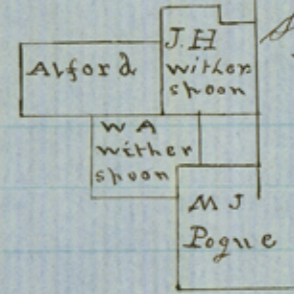 Alford
J. H
wither
spoon
W A
wither
spoon
M J
Pogue